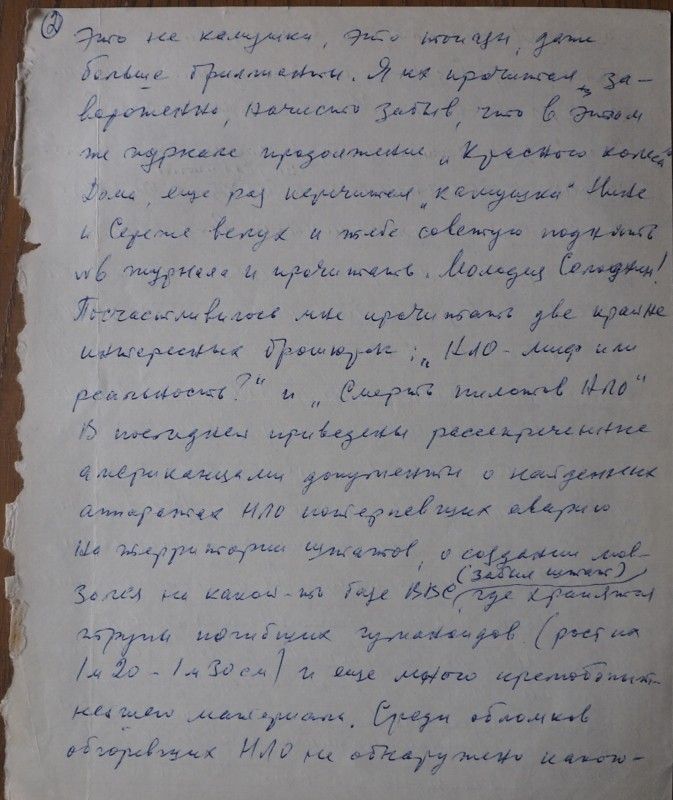 ②
Это не камушки, это топазы, даже
больше бриллианты. Я их прочитал за-
вороженно, начисто забыв, что в этом
же журнале продолжение „Красного колеса"
Дома, еще раз перечитал „камушки" Нине
и Сереже вслух и тебе советую поднять
журнала и прочитать. Молодец Солоухин!
Посчастливилось мне прочитать две крайне
интересных брошюрки: „НЛО - миф или
реальность?" и „Смерть пилотов НЛО"
В последней приведены рассекреченные
американцами документы о найденных
аппаратах НЛО потерпевших аварию
на территории штатов, о создании мав-
золея на какой-то базе ВВС (забыл штат), где хранятся
трупы погибших гуманоидов (рост их
1м20 - 1м30см) и еще много прелюбопыт-
нейшего материала. Среди обломков
обгоревших НЛО не обнаружено какого-